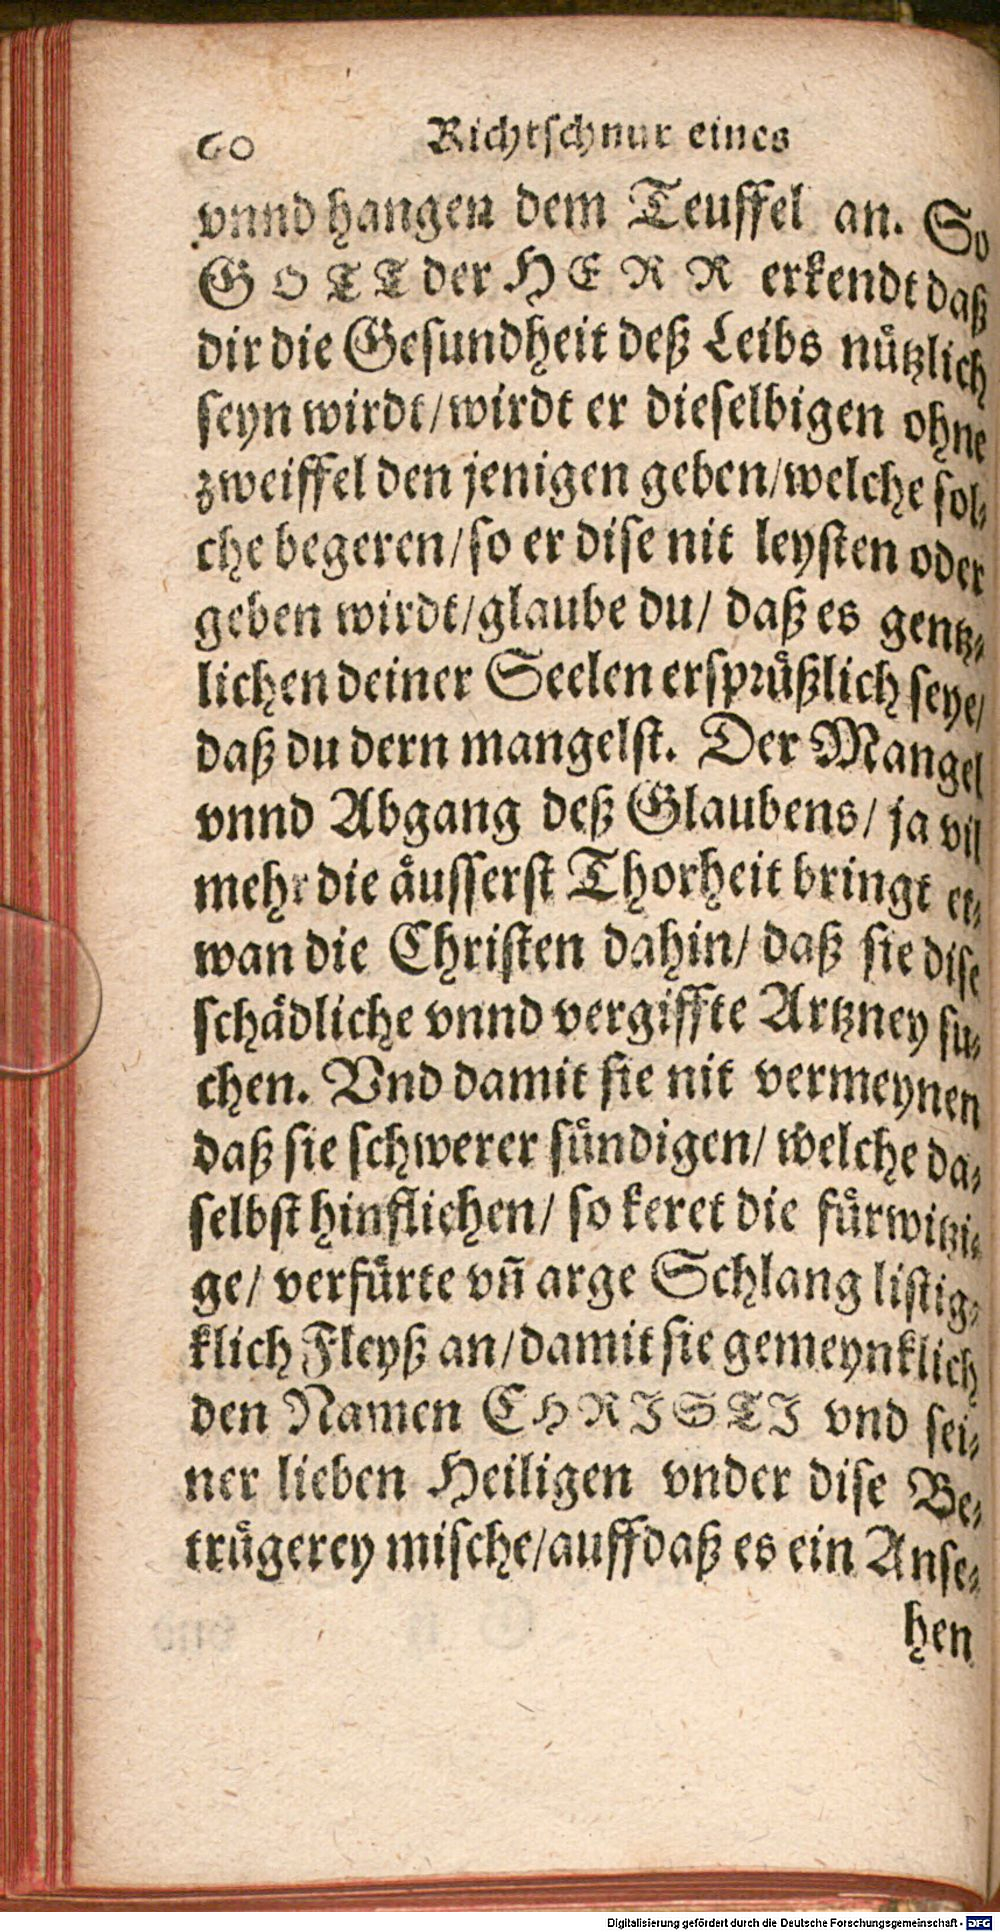 60 Richtschnur eines
vnnd hangen dem Teuffel an. So
GOTT der HERR erkendt daß
dir die Gesundheit deß Leibs nützlich
seyn wirdt/ wirdt er dieselbigen ohne
zweiffel den jenigen geben/ welche sol-
che begeren/ so er dise nit leysten oder
geben wirdt/ glaube du/ daß es gentz-
lichen deiner Seelen ersprüßlich seye/
daß du dern mangelst. Der Mangel
vnnd Abgang deß Glaubens/ ja vil
mehr die äusserst Thorheit bringt et-
wan die Christen dahin/ daß sie dise
schädliche vnnd vergiffte Artzney su-
chen. Vnd damit sie nit vermeynen
daß sie schwerer sündigen/ welche da-
selbst hinfliehen/ so keret die fürwitzi-
ge/ verfürte vñ arge Schlang listig-
klich Fleyß an/ damit sie gemeynklich
den Namen CHRISTI vnd sei-
ner lieben Heiligen vnder dise Be-
trügerey mische/ auffdaß es ein Anse-
hen
Digitalisierung gefördert durch die Deutsche Forschungsgemeinschaft - DFG